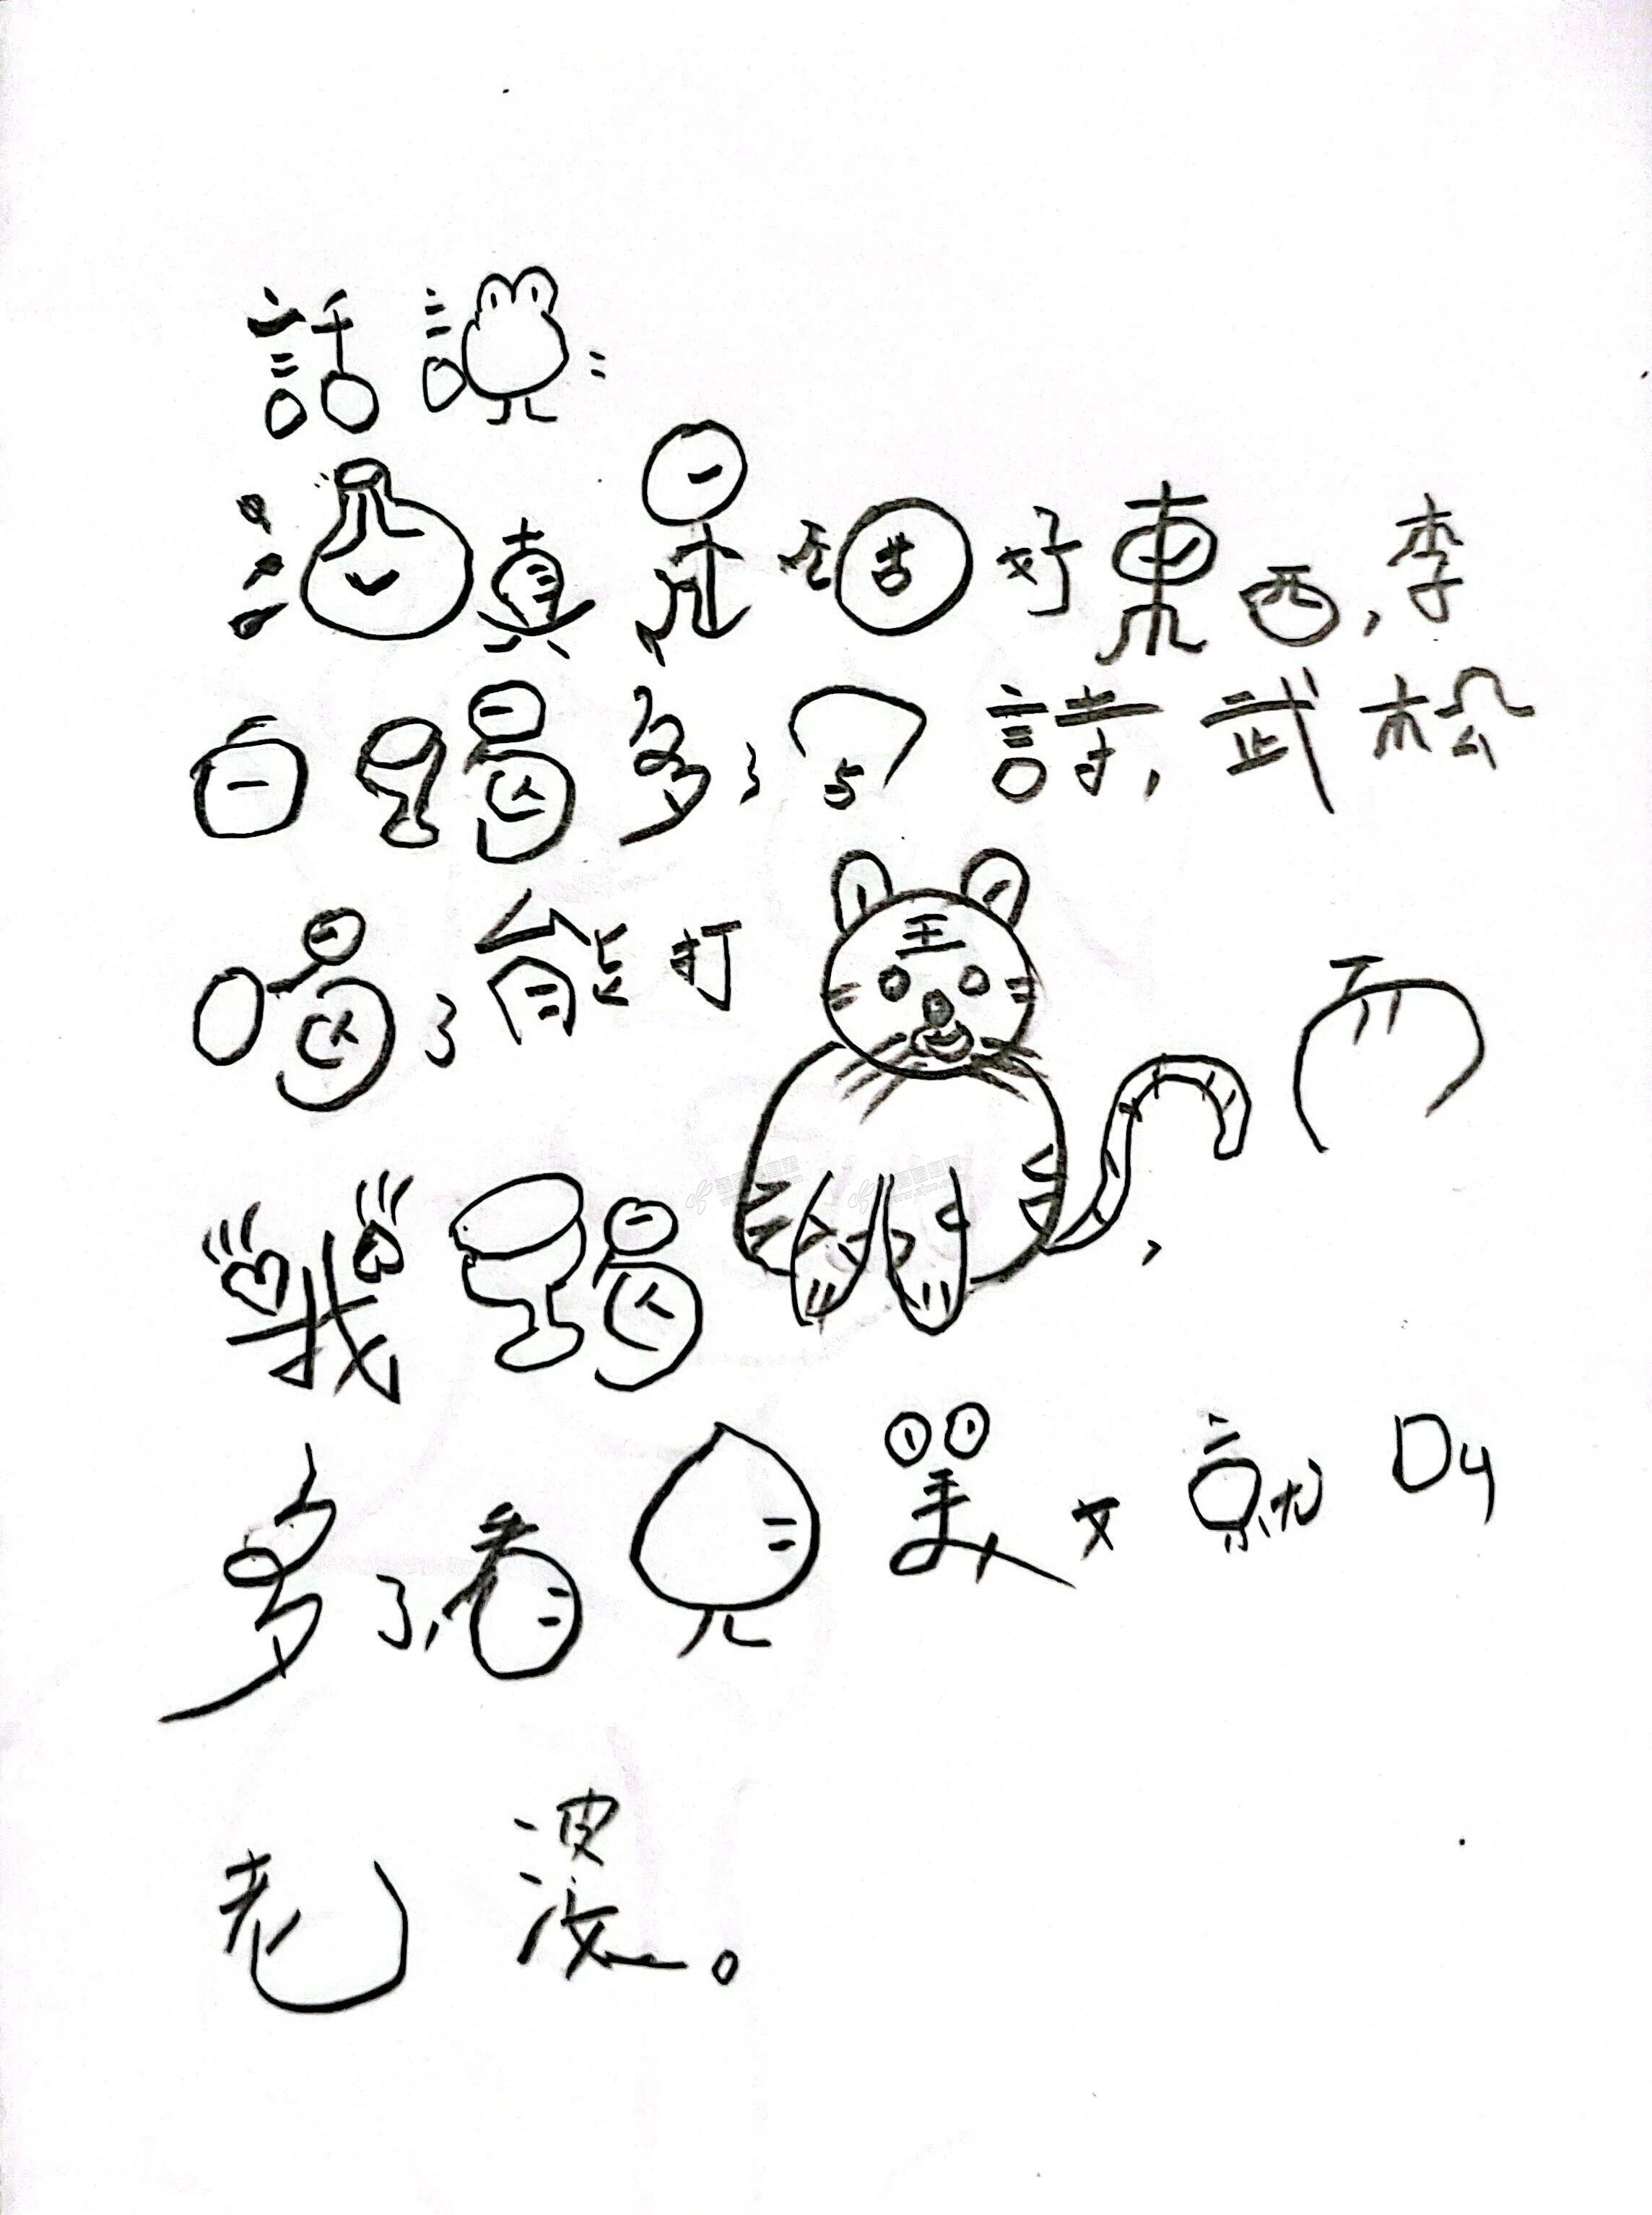 話說：
酒真是個好東西，李
白喝多了写詩，武松
喝了能打虎，而
我喝
多了，看見美女就叫
老婆。